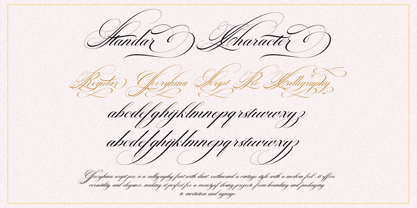 Standar Character
Regular Georgham Script Pro Calligraphy
abcdefghijklmnopqrstuvwxyz
abcdefghijklmnopqrstuvwxyz
Georgham script pro is a calligraphy font with a vintage style with a modern feel it offers
versatility and elegance making it perfect for a variety of design projects from branding and packaging
to invitation and signage